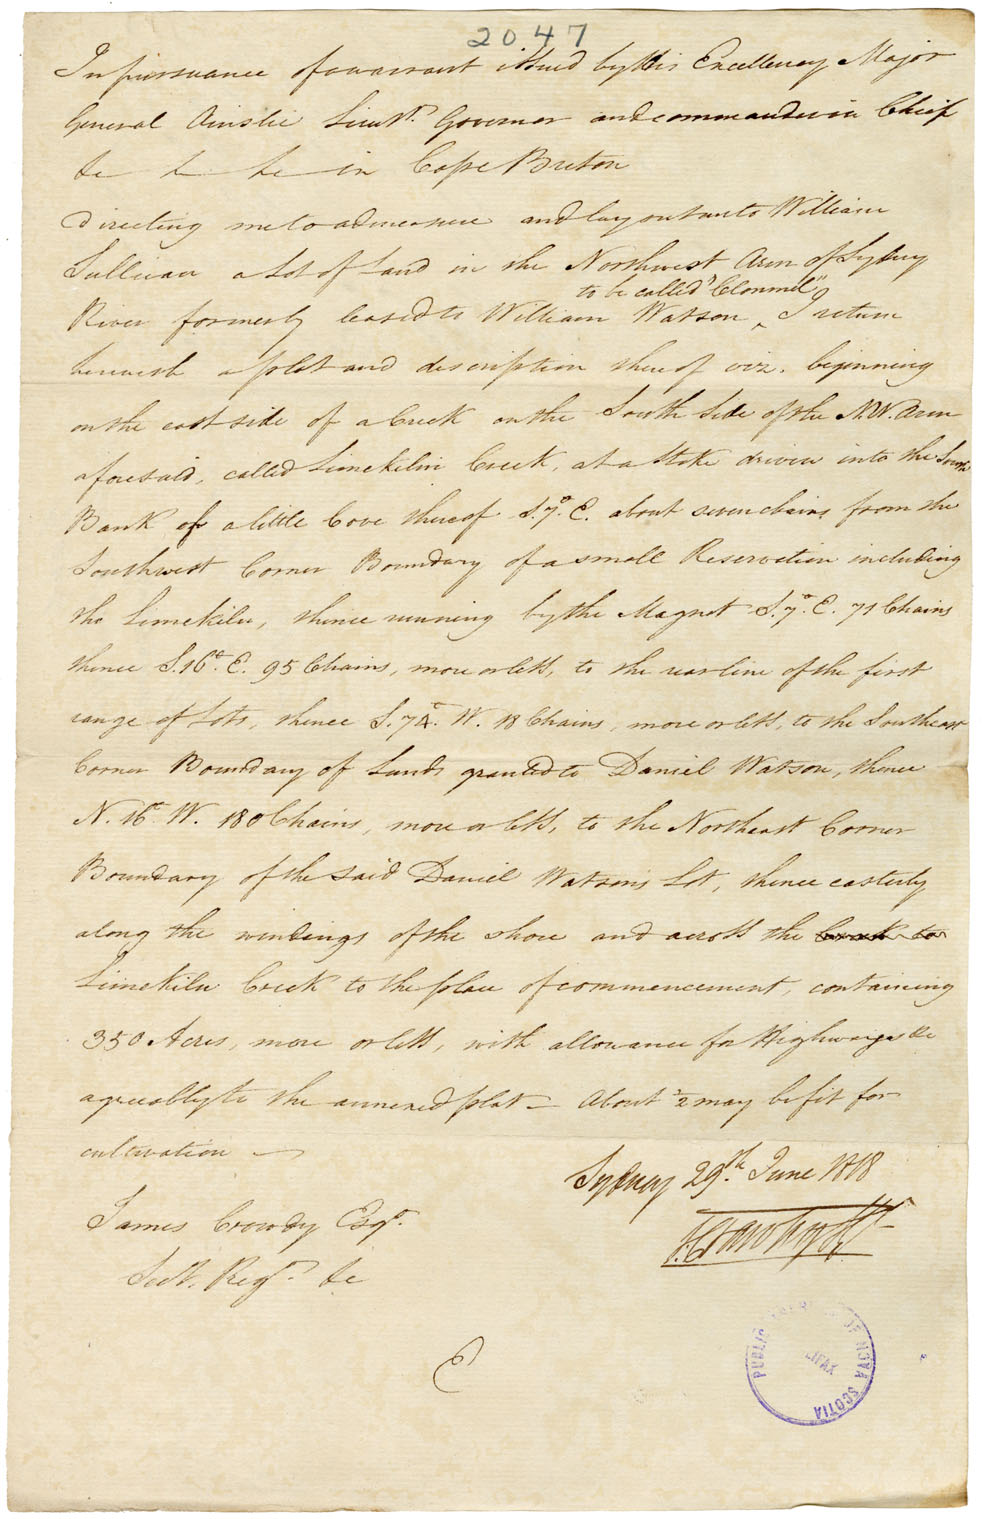 2047
In pursuance of a warrant issued by His Excellency Major
General Ainslie Lieut. Governor and commander in Chief
&c &c &c in Cape Breton
directing me to admeasure and lay out unto William
Sullivan a Lot of Land in the Northwest Arm of Sydney
to be called "Clonmel"
River formerly leased to William Watson ‸ I return
herewith a plot and description thereof viz. beginning
on the east side of a Creek on the South Side of the N.W. Arm
aforesaid, called Limekiln Creek, at a Stake driven into the South
Bank of a little Cove thereof S. 7°. E. about seven chains from the
Southwest Corner Boundary of a small Reservation including
the Limekiln, thence running by the Magnet S. 7°. E. 71 Chains
thence S. 16°. E. 95 Chains, more or less, to the rear line of the first
range of Lots, thence S. 74°. W. 18 Chains, more or less, to the Southeast
Corner Boundary of Lands granted to Daniel Watson, thence
N. 16°. W. 180 Chains, more or less, to the Northeast Corner
Boundary of the said Daniel Watson's Lot, thence easterly
along the windings of the shore and across the creek to
Limekiln Creek to the place of commencement, containing
350 Acres, more or less, with allowance for Highways &c
agreeably to the annexed plot — About ½ may be fit for
cultivation —
Sydney 29th. June 1818
James Crowdy Esqr.
Secy. Regr. &c
E
PUBLIC OF NOVA SCOTIA
LIFAX